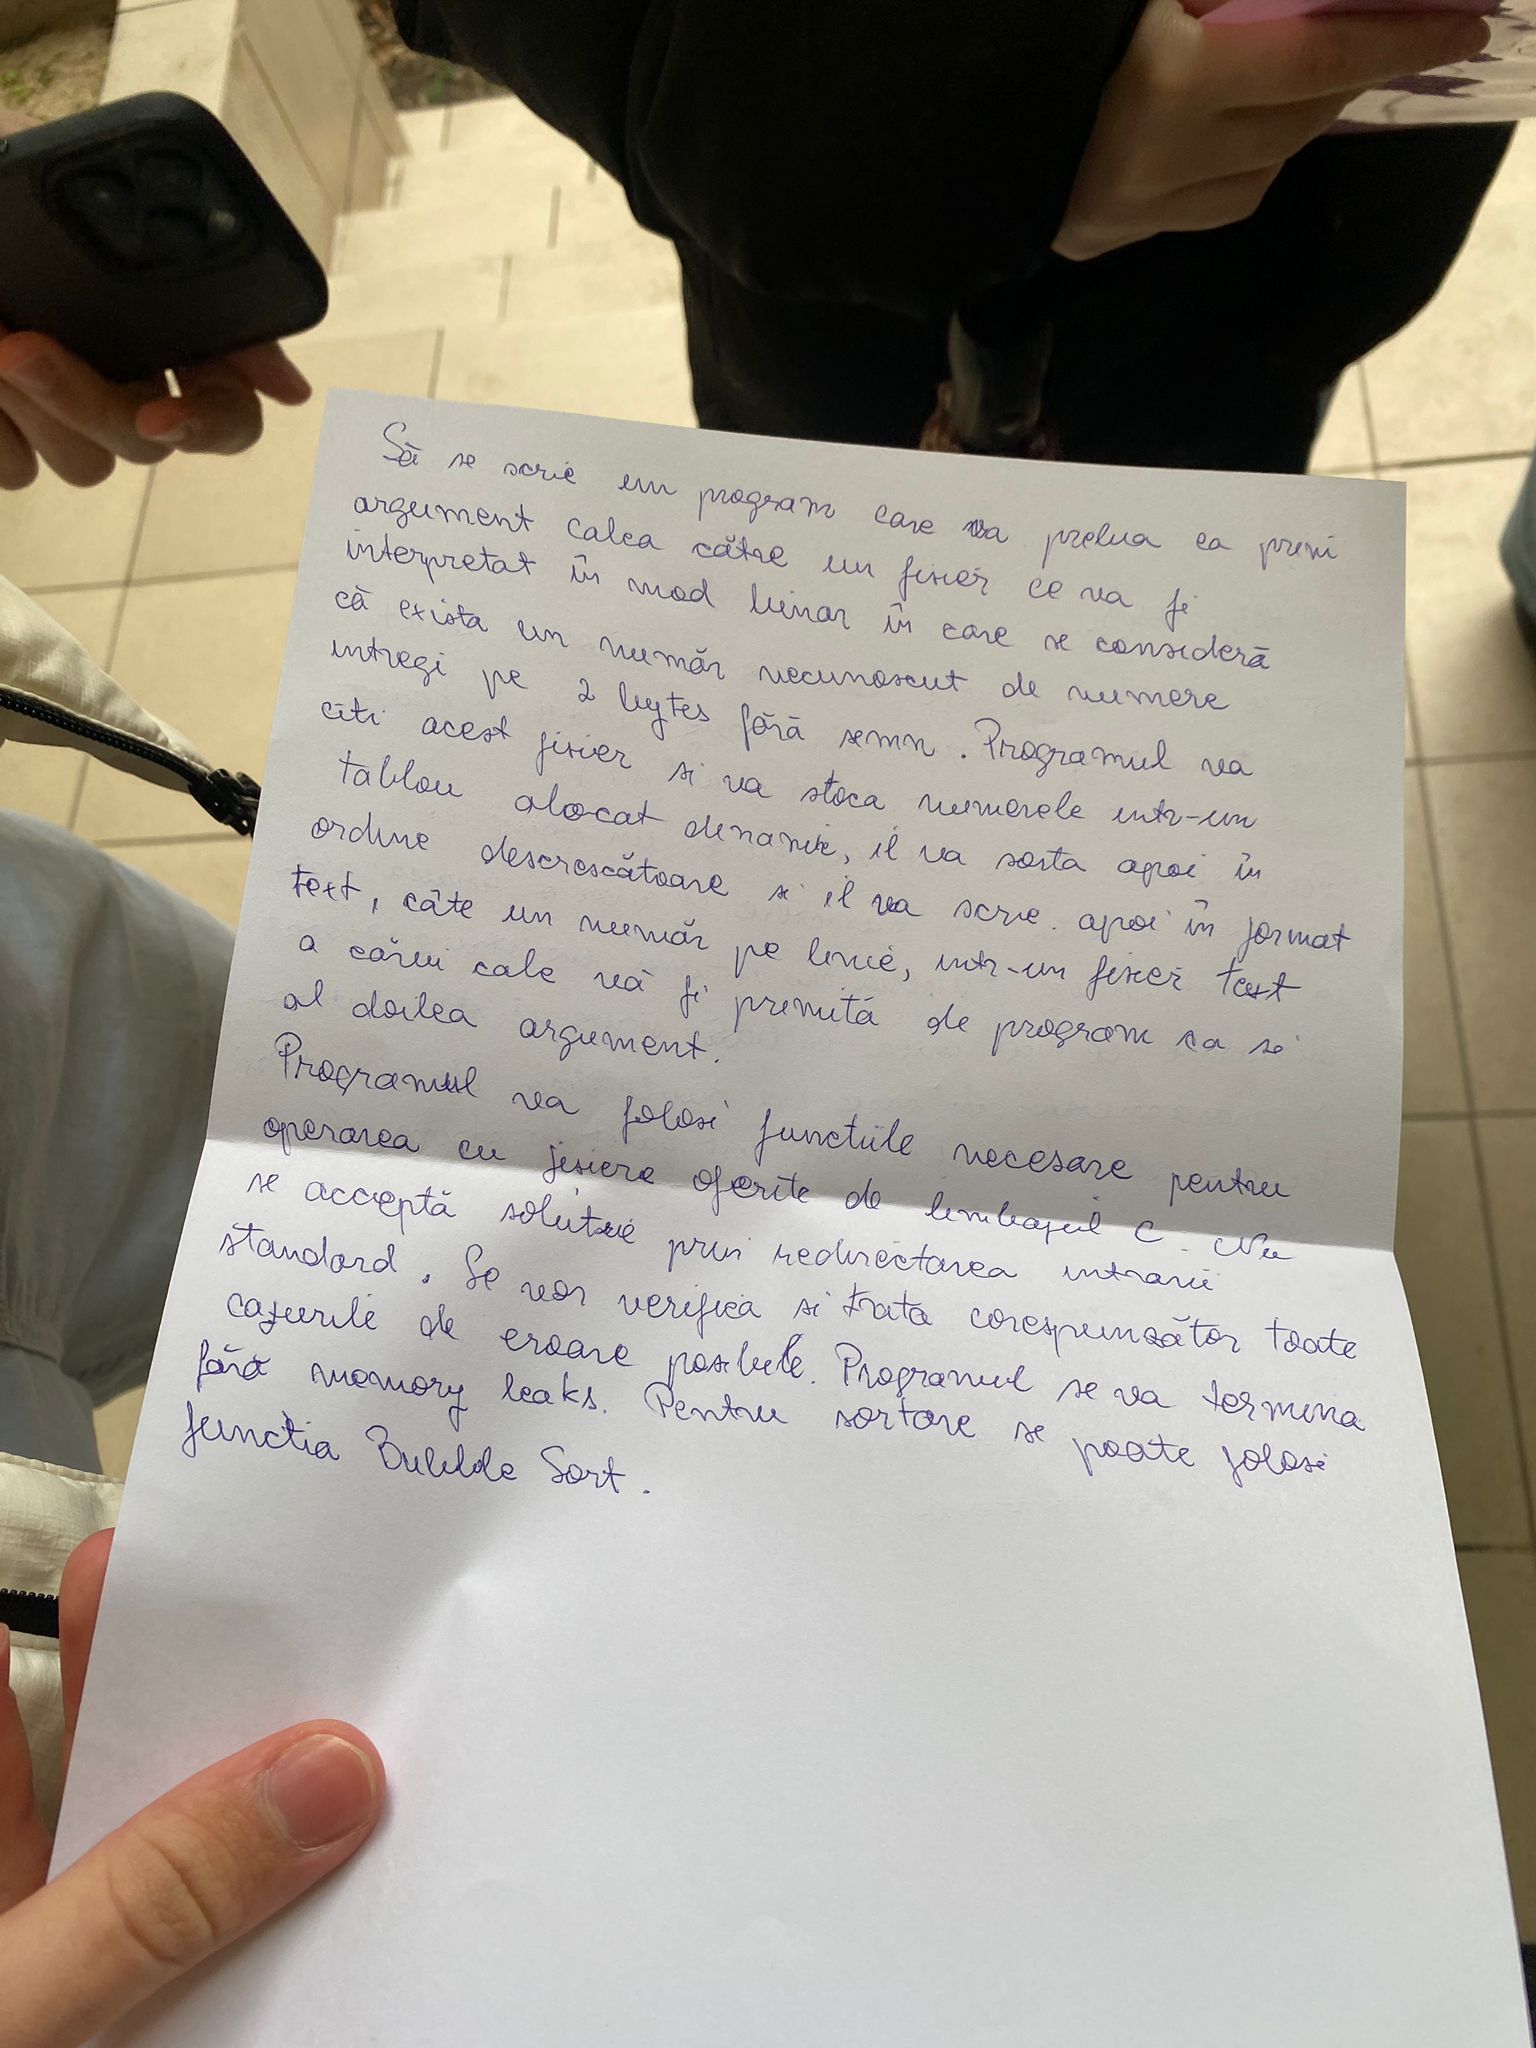 Să se scrie un program care va prelua ca prim
argument calea către un fisier ce va fi
interpretat în mod binar în care se consideră
că exista un număr necunoscut de numere
intregi pe 2 bytes fără semn. Programul va
citi acest fisier si va stoca numerele intr-un
tablou alocat dinamic, il va sorta apoi în
ordine descrescătoare si il va scrie apoi în format
text, câte un număr pe linie, intr-un fisier text
a cărui cale va fi primită de program ca si
al doilea argument.
Programul va folosi functiile necesare pentru
operarea cu fisiere oferite de limbajul C. Nu
se acceptă solutie prin redirectarea intrarii
standard. Se vor verifica si trata corespunzător toate
cazurile de eroare posibile. Programul se va termina
fără memory leaks. Pentru sortare se poate folosi
functia Bubble Sort.